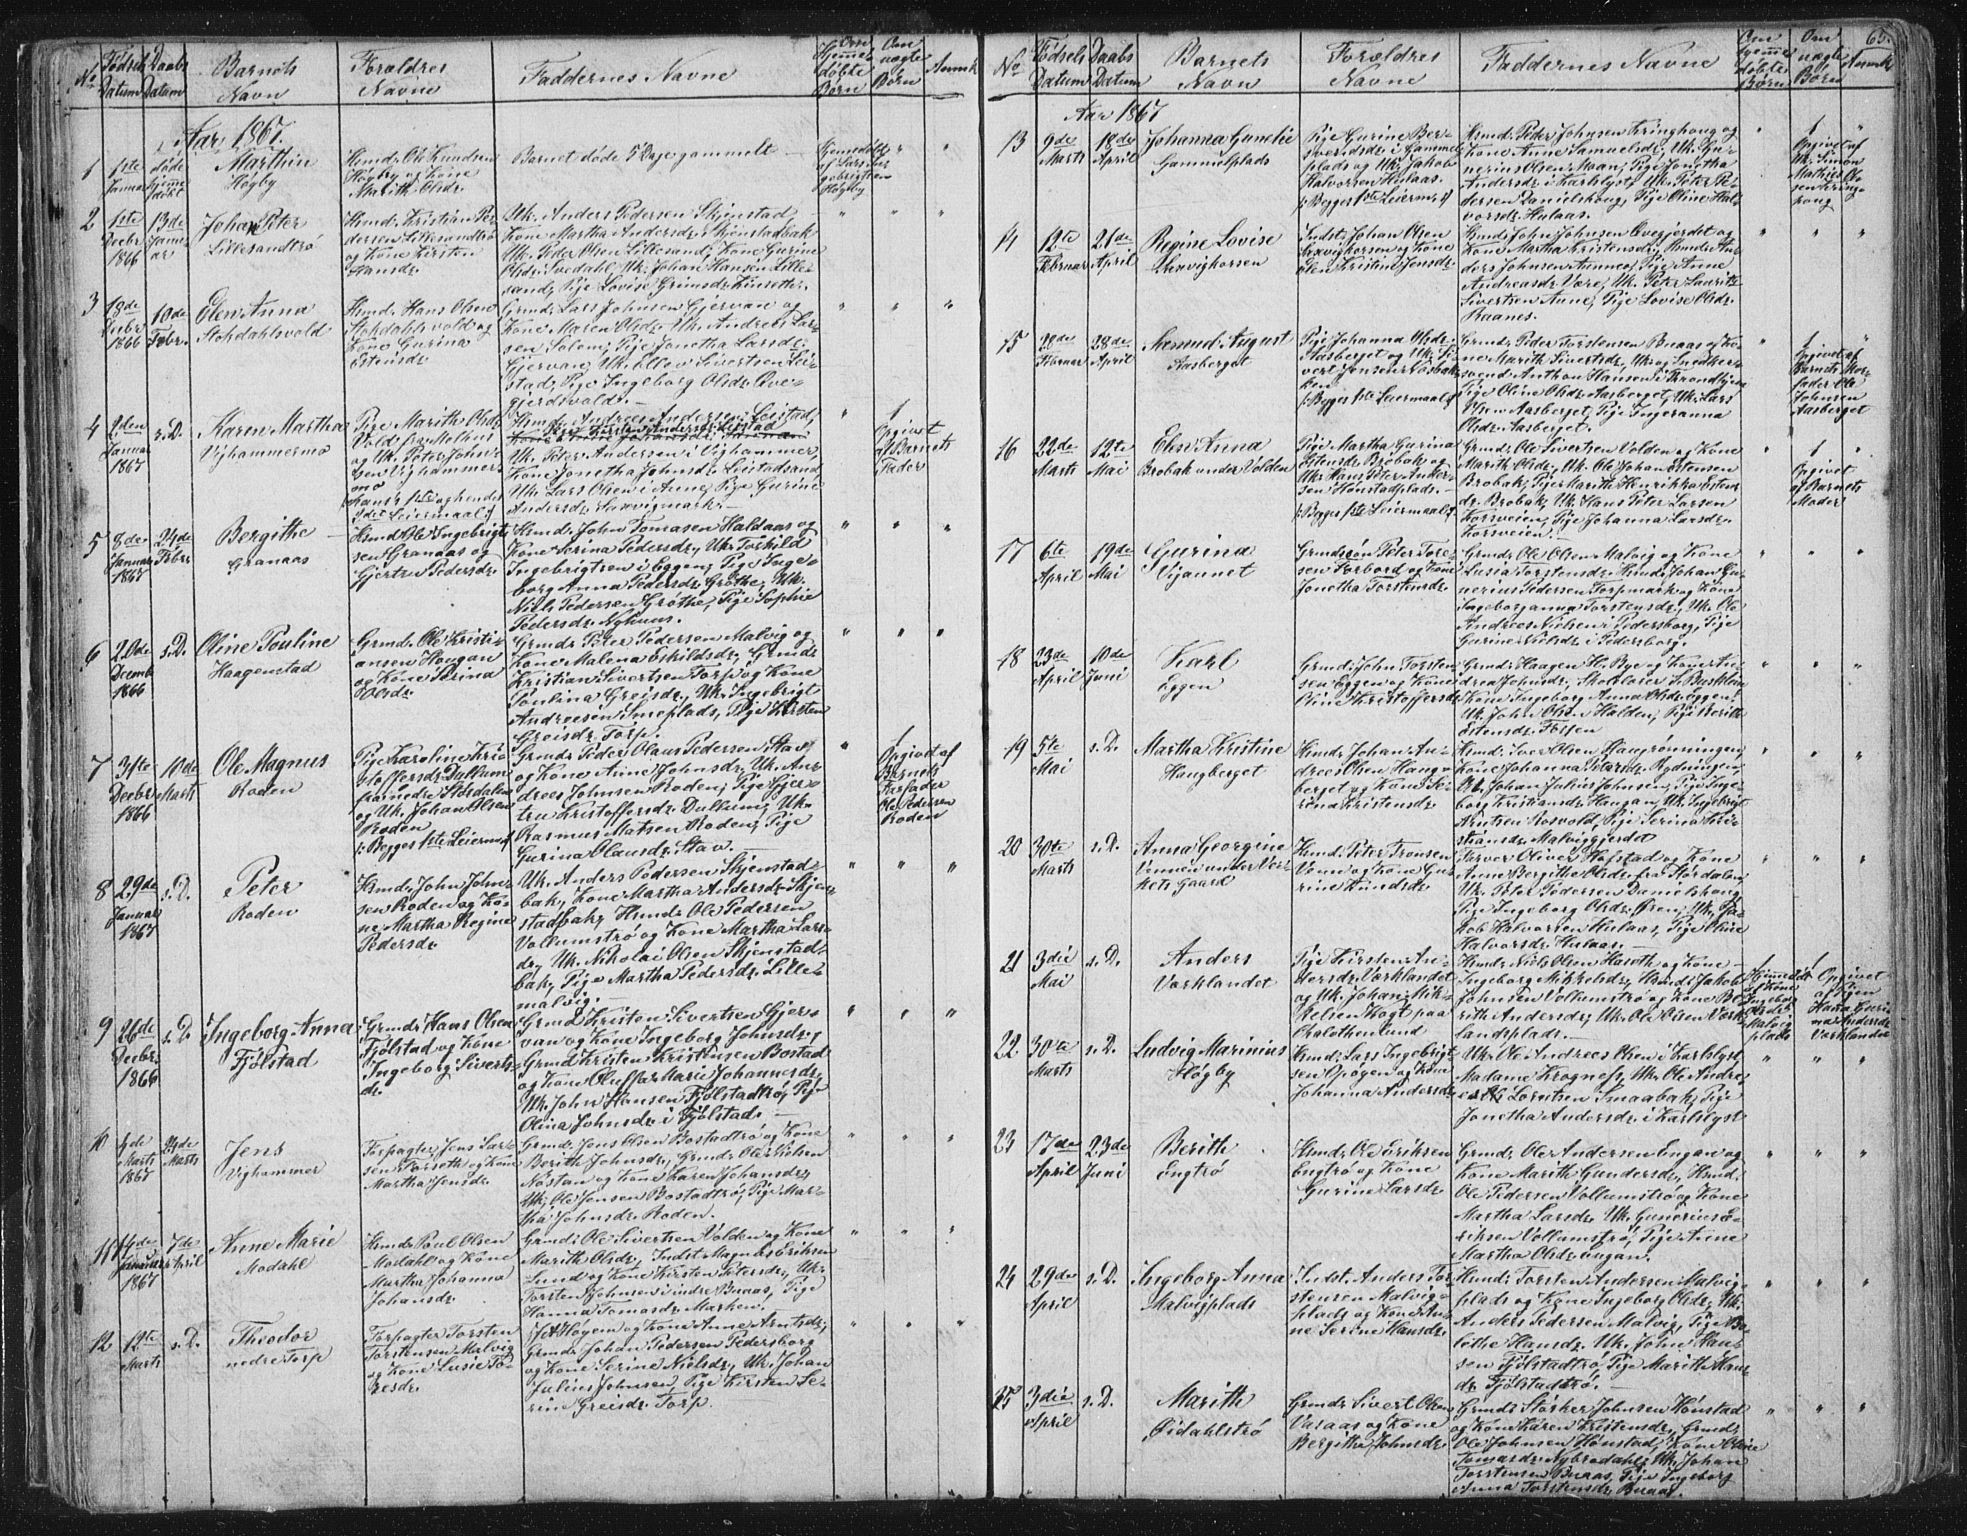 No
Fødsels
Datum
Daabs
Datum
Barnets
Navn
Forældres
Navne
Faddernes Navne
Om
Hjemme
døbte
Børn
Om
uægte
Børn
Anmk
Aar 1867.
1
1ste
Januar
døde
hjemme
døbt
Marthin
Høgby
Hsmd. Ole Knudsen
Høgby og Kone
Marith Olsdr.
Barnet døde 5 Dage gammelt
2
1ste
Decbr
1866
13de
Janu
ar
Johan Peter
Lillesandtrø
Hsmd. Kristian Pe-
dersen Lillesandtrø
og Kone Kirsten
Hansdr.
Uk. Anders Pedersen Skjenstad,
Kone Martha Andersdr. Skjenstadbak
Uk. Peder Olsen Lillesand, Kone Gurine
Olsdr. Svedahl, Uk. Johan Hansen Lille-
sand, Pige Lovise Grimsdr.
3
18de
Decbr
1866
10de
Febr.
Elen Anna
Stokdahlsvold
Hsmd. Hans Olsen
Stokdahlsvold og
Kone Gurina
Estensdr.
Grmd. Lars Johnsen Gjervan og
Kone Maren Olsdr. Uk. Andreas Lar-
sen Solem, Pige Jonetha Larsdr.
Gjervan, Uk. Ellev Sivertsen Lei-
stad, Pige Ingeborg Olsdr. Ove-
gjerdsvold.
4
2den
Januar
1867
s. D.
Karen Martha
Vighammermo
Pige Marith Olsdr.
Vold fra Melhus
og Uk. Peter John-
sen Vighammer-
mo
Hsmd. Andreas Andersen Leistad,
Uk. Peter Andersen i Vighammer,
Kone Jonetha Johnsdr. Leistadsand
Uk. Lars Olsen i Anne, Pige Gurine
Andersdr. Saxvigmark.
Opgivet
af Barnets
Fader
5
8de
Januar
1867
24de
Febr.
Bergithe
Granaas
Hsmd. Ole Ingebrigt-
sen Granaas og
Gjertru Pedersdr.
Hsmd. John Tomasen Haldaas og
Kone Serina Pedersdr., Uk. Torkild
Ingebrigtsen i Eggen, Pige Inge-
borg Anna Pedersdr. Grøthe, Uk.
Niels Pedersen Grøthe, Pige Sophie
Pedersdr. Nyhuus.
6
20de
Decemb
1866
s. D.
Oline Pouline
Haagenstad
Grmd. Ole Kristi-
ansen Hougan
og Kone Serina
Olsdr.
Grmd. Peter Pedersen Malvig og
Kone Malena Eskildsdr., Grmd.
Kristian Sivertsen Torp og Kone
Poulina Greisdr., Uk. Ingebrigt
Andreesen Smeplads, Pige Kirsten
Greisdr. Torp.
7
31te
Decbr
1866
10de
Marts
Ole Magnus
Roden
Pige Karoline Kri-
stoffersdr. Dullum
fra nedre Størdalen
og Uk. Johan Olsen
Roden
(: Begges 1ste Leiermaal
Grmd. Peder Olaus Pedersen Stav
og Kone Anne Johnsdr., Uk. An-
drees Johnsen Roden, Pige Gjer-
tru Kristoffersdr. Dullum, Uk.
Rasmus Matsen Roden, Pige
Gurina Olausdr. Stav.
Opgivet af
Barnets
Farfader
Ole Pedersen
Roden
8
29de
Januar
1867
s. D.
Peter
Roden
Hsmd. John John-
sen Roden og Ko-
ne Martha Regine
Pedersdr.
Uk. Anders Pedersen Skjenstad-
bak, Kone Martha Andersdr. Skjen-
stadbak, Hsmd. Ole Pedersen
Vollumstrø og Kone Martha Lars-
dr., Uk. Nikolai Olsen Skjenstad-
bak, Pige Martha Pedersdr. Lille-
malvig.
9
26de
Decbr.
1866
s. D.
Ingeborg Anna
Fjølstad
Grmd. Hans Olsen
Fjølstad og Kone
Ingeborg Siverts-
dr.
Grmd. Kristen Sivertsen Gjer-
van og Kone Ingeborg Johnsdr.,
Grmd. Kristen Kristensen Bostad
og Kone Oluffa Marie Johannesdr.,
Uk. John Hansen Fjølstadtrø, Pige
Olina Johnsdr. i Fjølstad.
10
4de
Marts
1867
24de
Marts
Jens
Vighammer
Forpagter Jens Lar-
sen Farseth og Kone
Martha Jensdr.
Grmd. Jens Olsen Bostadtrø og Kone
Berith Johnsdr., Grmd. Ole Nielsen
Nøstan og Kone Karen Johansdr.,
Uk. Ole Jensen Bostadtrø, Pige Mar-
tha Johnsdr. Roden.
11
14de
Januar
1867
7de
April
Anne Marie
Modahl
Hsmd. Paul Olsen
Modahl og Kone
Martha Johanna
Johansdr.
Grmd. Ole Sivertsen Volden og Kone
Marith Olsdr., Indst. Magnus Eriksen
Lund og Kone Kirsten Petersdr., Uk.
Torsten Johnsen i indre Buaas, Pige
Hanna Tomasdr. Marken.
12
12te
Marts
s. D.
Theodor
nedre Torp
Forpagter Torsten
Torstensen Malvig
og Kone Lusie To-
resdr.
Høyem og Kone Anne Arntsdr.,
Grmd. Johan Pedersen Pedersborg
og Kone Serine Nielsdr., Uk. Johan
Julius Johnsen, Pige Kirsten Se-
rine Greisdr. Torp.
65.
No
Fødsels
Datum
Daabs
Datum
Barnets
Navn
Forældres
Navne
Faddernes Navne
Om
Hjemme
døbte
Børn
Om
uægte
Børn
Anmk
Aar 1867
13
9de
Marts
18de
April
Johanna Gunelie
Gammelplads
Pige Gurine Ber-
Gammel-
plads og Uk. Jakob
Halvorsen Hulaas.
(: Begges 1ste Leierm.:)
Hsmd. Peder Johnsen Kringhoug og
Kone Anne Samuelsdr., Uk. Gu-
nerius Olsen Moan, Pige Jonetha
Andersdr. i Karklyst, Uk. Peter Pe-
dersen Danielshoug, Pige Oline Hal-
vorsdr. Hulaas.
Opgivet af
Uk. Simon
Mathias Ol-
sen
14
12te
Februar
26de
April
Regine Lovise
Saxvigkorsen
Indst. Johan Olsen
Saxvigkorsen og Kone
Elen Kristine Jensdr.
Hsmd. John Johnsen Overjerdet og
Kone Martha Kristensdr., Hsmd. An-
ders Johnsen Aunna, Pige Anne
Andreasdr. Være, Uk. Peter Lauritz
Sivertsen Aune, Pige Lovise Olsdr.
Raanes.
15
28de
April
Amund August
Aasberget
Pige Johanna Olsdr.
Aasberget og Uk. Si-
vert Jonsen Rosbak-
ken
(: Begges 1ste Leiermaal :)
Grmd. Peder Torstensen Buaas og Ko-
ne Marith Sivertsdr., Uk. og Snedker-
svend Anthon Hansen i Trondhjem
Pige Oline Olsdr. Aasberget, Uk. Lars
Olsen Aasberget, Pige Ingeranna
Olsdr. Aasberget.
Opgivet af
Barnets Mor-
fader Ole
Johnsen
Aasberget
16
22de
Marts
12te
Mai
Elen Anna
Brobak under Volden
Pige Martha Gurina
Estensdr. Brobak og
Uk. Hans Peter Ander-
sen Hønstadplads.
(: Begges 1ste Leiermaal :)
Grmd. Ole Sivertsen Volden og Kone
Marith Olsdr., Uk. Ole Johan Estensen
Brobak, Pige Marith Henrikka Estens-
dr. Brobak, Uk. Hans Peter Larsen
Korsveien, Pige Johanna Larsdr.
Korsveien.
Opgivet
af Barnets
Moder
17
6te
April
19de
Mai
Gurina
Viaunet
Grmdssøn Peter Tore-
sen Forbord og Kone
Jonetha Torstensdr.
Grmd. Ole Olsen Malvig og Kone
Lusia Torstensdr., Hsmd. Johan Gu-
nerius Pedersen Torpmark og Kone
Ingeborganna Torstensdr., Uk. Ole
Andreas Nielsen i Pedersborg, Pige
Gurine Nielsdr. i Pedersborg.
18
23de
April
10de
Juni
Karl
Eggen
Grmd. John Torsten
sen Eggen og Kone
Oline Kristoffersdr.
Grmd. Haagen H. Bye og Kone An-
drea Johnsdr., Skolelærer
Kone Ingeborg Anna Olsdr. Eggen,
Uk. John Olsen Halden, Pige Berith
Estensdr. Folden
19
5te
Mai
s. D.
Martha Kristine
Haugberget
Hsmd. Johan An-
drees Olsen Haug-
berget og Kone Se-
rina Kristensdr.
Hsmd. Iver Olsen Haugrønningen,
Kone Johanna Petersdr. Rydningen,
Uk. Johan Julius Johnsen, Pige Inge-
borg Kristiansdr. Hougan, Uk. Ingebrigt
Knutsen Rosvold, Pige Serina Kri-
stiansdr. Malviggjerdet
20
30te
Marts
s. D.
Anna Georgine
Vennen under Ver-
kets Gaard
Hsmd. Peter Tronsen
Venn og Kone Gu-
rine Amundsdr.
Farver Oliver Hofstad og Kone
Anne Bergithe Olsdr. fra Størdalen,
Uk. Peter Pedersen Danielshoug,
Pige Ingeborg Olsdr. Øren, Uk. Ja-
kob Halvorsen Hulaas, Pige Oline
Halvorsdr. Hulaas.
21
3die
Mai
s. D.
Anders
Varklandet
Pige Kirsten An-
dersdr. Varklandet
og Uk. Johan Mik-
kelsen Hogt paa
Hsmd. Niels Olsen Hasoth og Kone
Ingeborg Mikkelsdr., Hsmd. Jakob
Johnsen Vollumstrø og Kone Be-
rith Andersdr., Uk. Ole Olsen Vark-
landsplads.
Hjemmedøbt
af Kone
Ingeborg
Olsdr.
Malvig-
plads
Opgivet
af Pigen
Hanna Guri-
na Andersdr.
Varklandet
22
30te
Marts
s. D.
Ludvig Marinius
Høgby
Hsmd. Lars Ingebrigt-
sen Opøgen og Kone
Johanna Andersdr.
Uk. Ole Andreas Olsen i Karklyst,
Madame Krogness, Uk. Ole Andre-
as Lorntsen Smaabak, Pige
Jonetha Andersdr. i Karklyst
23
17de
April
23de
Juni
Berith
Engtrø
Hsmd. Ole Eriksen
Engtrø og Kone
Gurine Larsdr.
Grmd. Ole Andersen Engan og
Kone Marith Gundersdr., Hsmd.
Ole Pedersen Vollumstrø og Kone
Martha Larsdr. Uk. Gunerius E-
riksen Vollumstrø, Pige Anne
Martha Olsdr. Engan.
24
29de
April
s. D.
Ingeborg Anna
Malvigplads
Indst. Anders Tor-
stensen Malvig-
plads og Kone An-
ne Serine Hansdr.
Hsmd. Torsten Andersen Malvig-
plads og Kone Ingeborg Olsdr., Uk.
Anders Pedersen Malvig, Pige Bo-
lethe Hansdr., Uk. John Han-
sen Fjølstadtrø, Pige Marith Hans-
dr. Fjølstadtrø.
25
3die
April
s. D.
Marith
Øidahlstrø
Grmd. Sivert Olsen
Vasaas og Kone
Bergitha Johnsdr.
Grmd. Størker Johnsen Hønstad
og Kone Karen Kristensdr., Grmd.
Ole Johnsen Hønstad, Kone Oline
Tomasdr. Nybrodahl, Uk. Johan
Torstensen Buaas, Pige Ingeborg
Anna Torstensdr. Buaas.